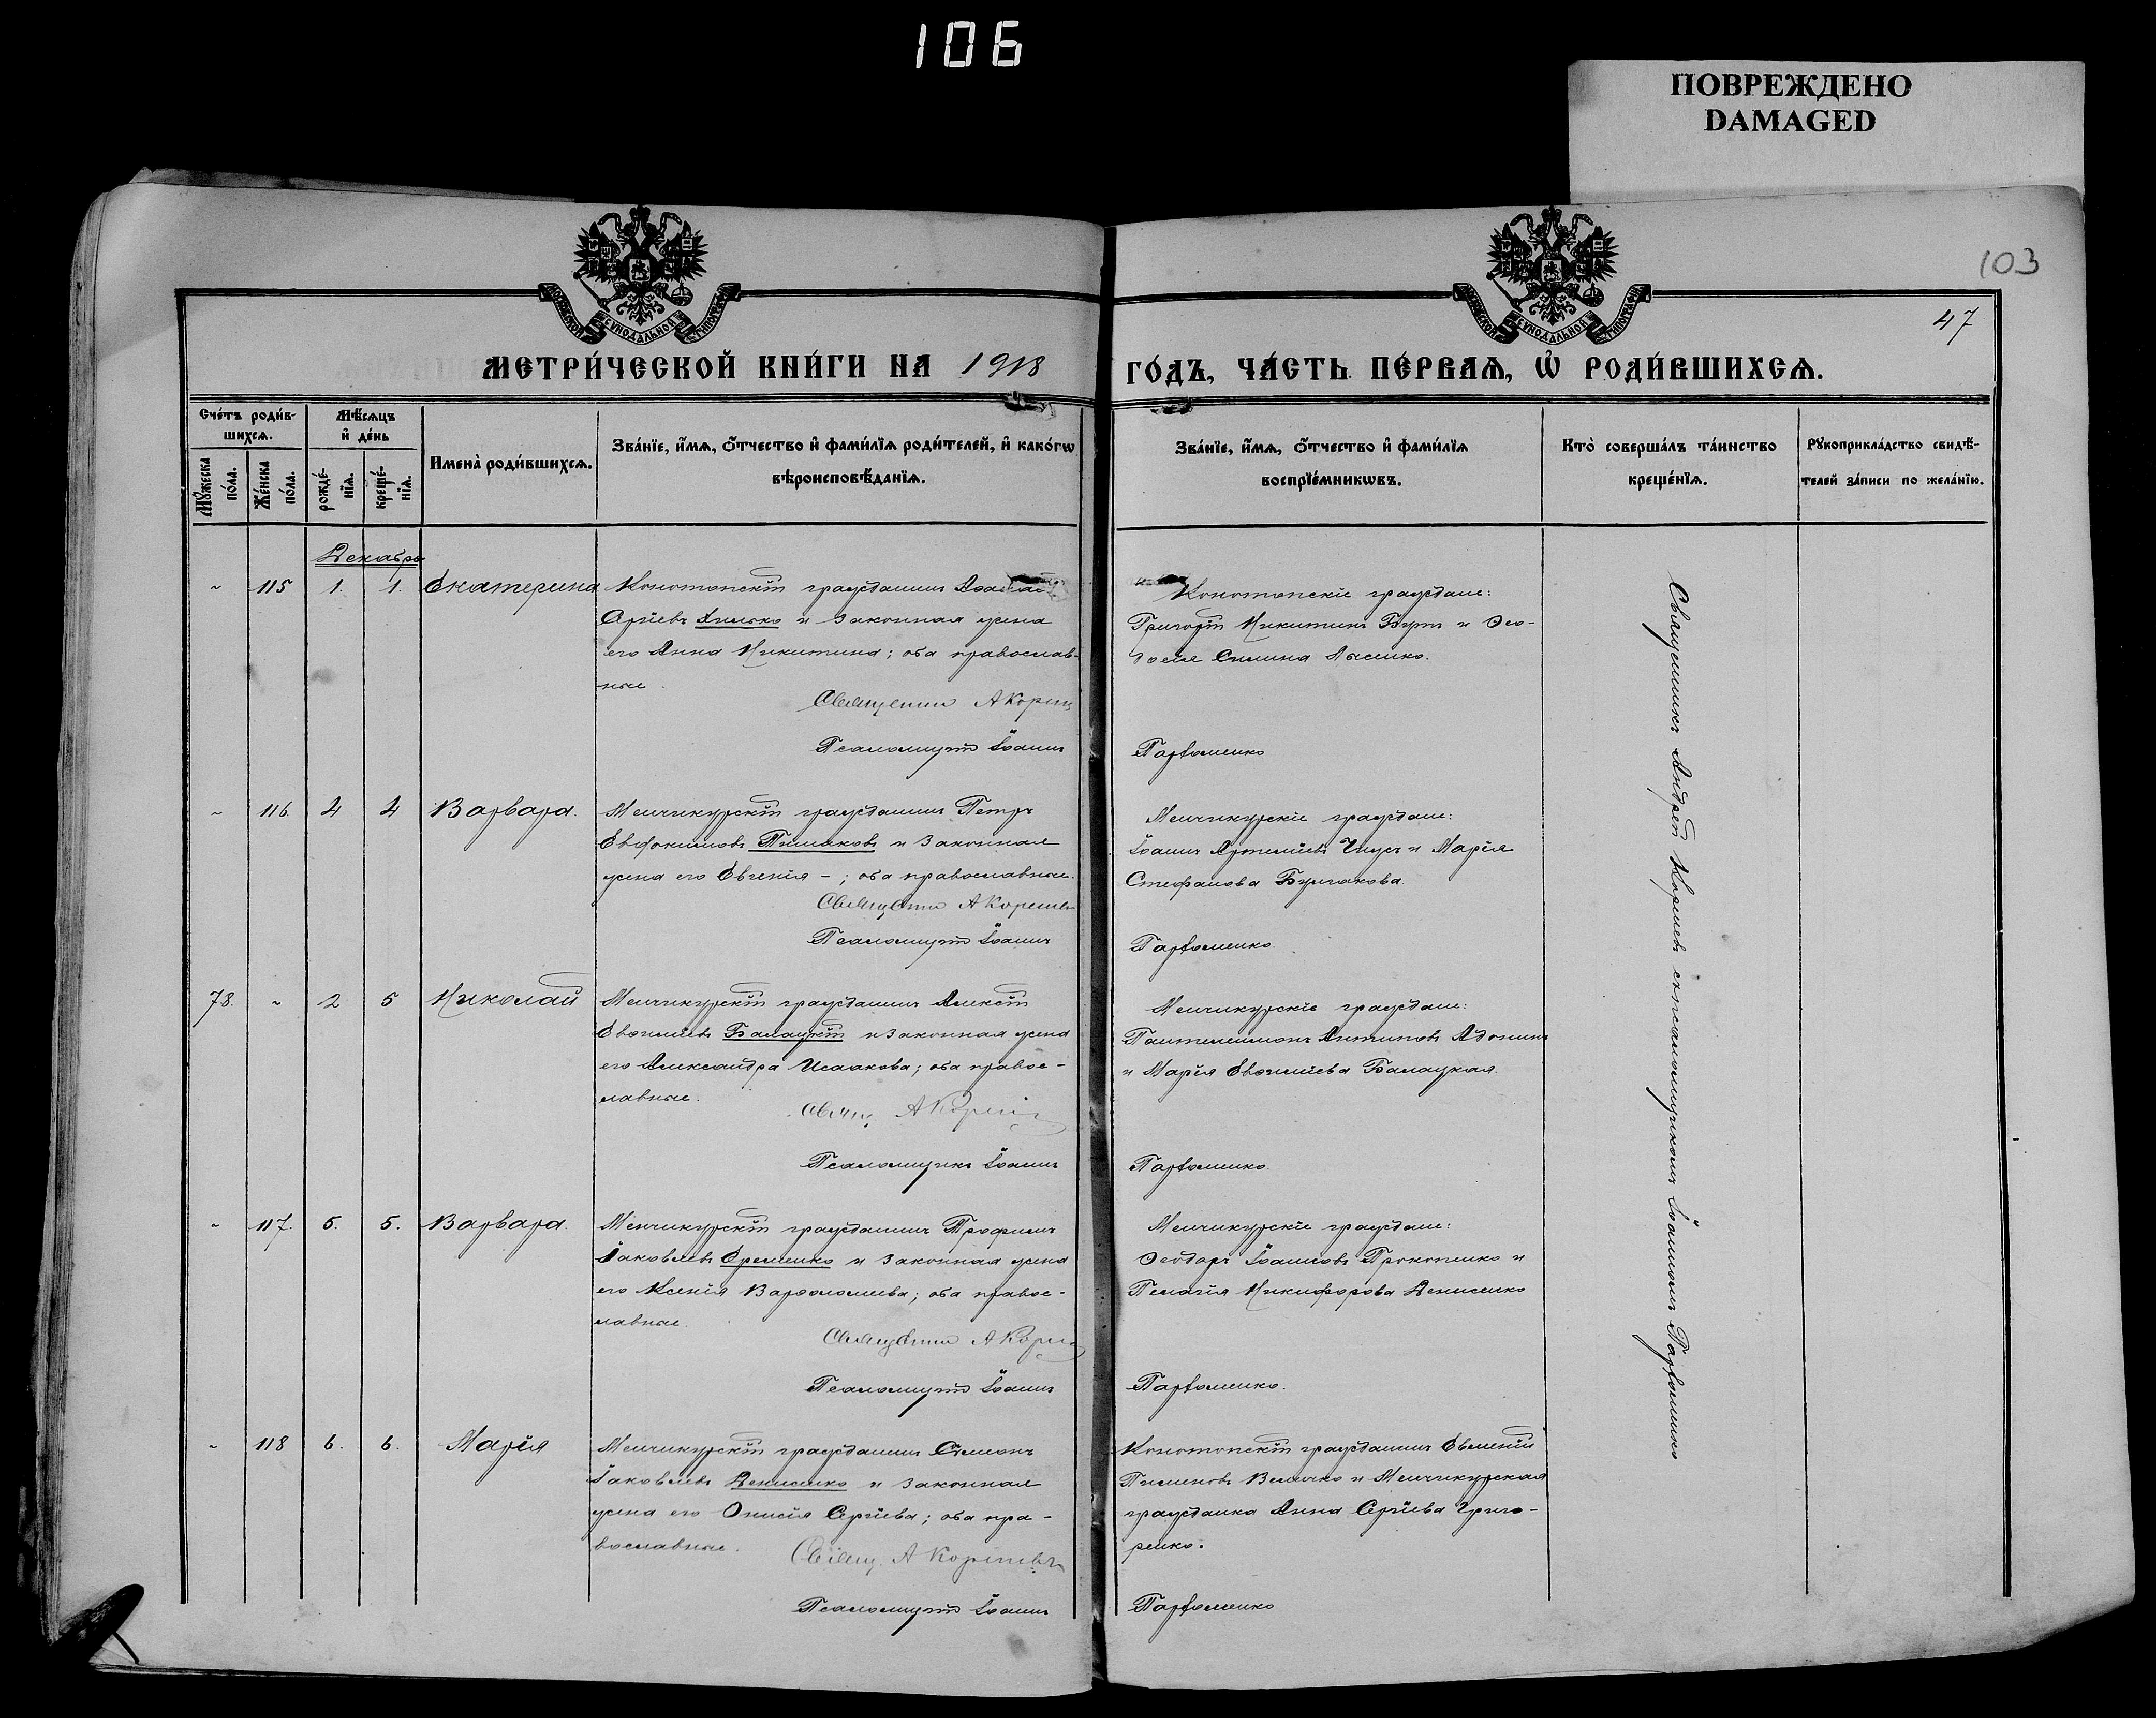 106
ПОВРЕЖДЕНО
DAMAGED
103
47
МЕТРИ́ЧЕСКОЙ КНИ́ГИ НА 1918
ГО́ДЪ, ЧА́СТЬ ПЕ́РВАѦ, Ѡ҆ РОДИ́ВШИХСѦ.
Сче́тъ роди́в-
шихсѧ.
Мѣ́сѧцъ
и҆ де́нь
Мꙋ́жеска
по́ла.
Же́нска
по́ла.
рожде́-
нїѧ.
креще́-
нїѧ.
Имена̀ роди́вшихсѧ.
Зва́нїе, и҆́мѧ, ѻ҆́тчество и҆ фами́лїѧ роди́телей, и҆ како́гѡ
вѣроисповѣ́данїѧ.
Зва́нїе, и҆́мѧ, ѻ҆́тчество и҆ фами́лїѧ
воспрїе́мникѡвъ.
Кто̀ соверша́лъ та́инство
креще́нїѧ.
Рꙋкоприкла́дство свидѣ́-
телей за́писи по жела́нїю.
Декабрь
115 1. 1. Екатерина
Конотопскій гражданинъ
Сергіевъ и законная жена
его Анна Никитина; оба православ-
ные.
Священник А Корнiев
Псаломщикъ Іоаннъ
Конотопскіе граждане:
Григорій Никитинъ Бутъ и Ѳео-
досія Силина Лысенко.
Пархоменко
116. 4 4 Варвара.
Менчикурскій гражданинъ Петръ
Евфокимовъ Тимаковъ и законная
жена его Евгенія – ; оба православные.
Священник А Корнiев
Псаломщикъ Іоаннъ
Менчикурскіе граждане:
Іоаннъ Артеміевъ и Марія
Стефанова Булгакова.
Пархоменко.
78. 2 5 Николай
Менчикурскій гражданинъ Алексій
Евѳиміевъ Балацкій и законная жена
его Александра Исаакова; оба правос-
лавные.
Свящ. А Корнiев
Псаломщикъ Іоаннъ
Менчикурскіе граждане:
Пантелеимонъ Антиповъ Адонинъ
и Марія Евѳиміева Балацкая.
Пархоменко.
117. 5. 5. Варвара.
Менчикурскій гражданинъ Трофимъ
Іаковлевъ Еременко и законная жена
его Ксенія Варѳоломеева; оба правос-
лавные.
Священник А Корнiев
Псаломщикъ Іоаннъ
Менчикурскіе граждане:
Ѳеодоръ Іоанновъ Прокопенко и
Пелагія Никифорова Денисенко
Пархоменко.
118 6. 6. Марія
Менчикурскій гражданинъ Симеонъ
Іаковлевъ Денисенко и законная
жена его Онисія Сергіева; оба пра-
вославные.
Свящ. А Корнiевъ
Псаломщикъ Іоаннъ
Конотопскій гражданинъ Евмений
Пименовъ Величко и Менчикурская
гражданка Анна Сергіева Григо-
ренко.
Пархоменко
Священникъ Андрей Корніевъ съ псаломщикомъ Іоанномъ Пархоменко